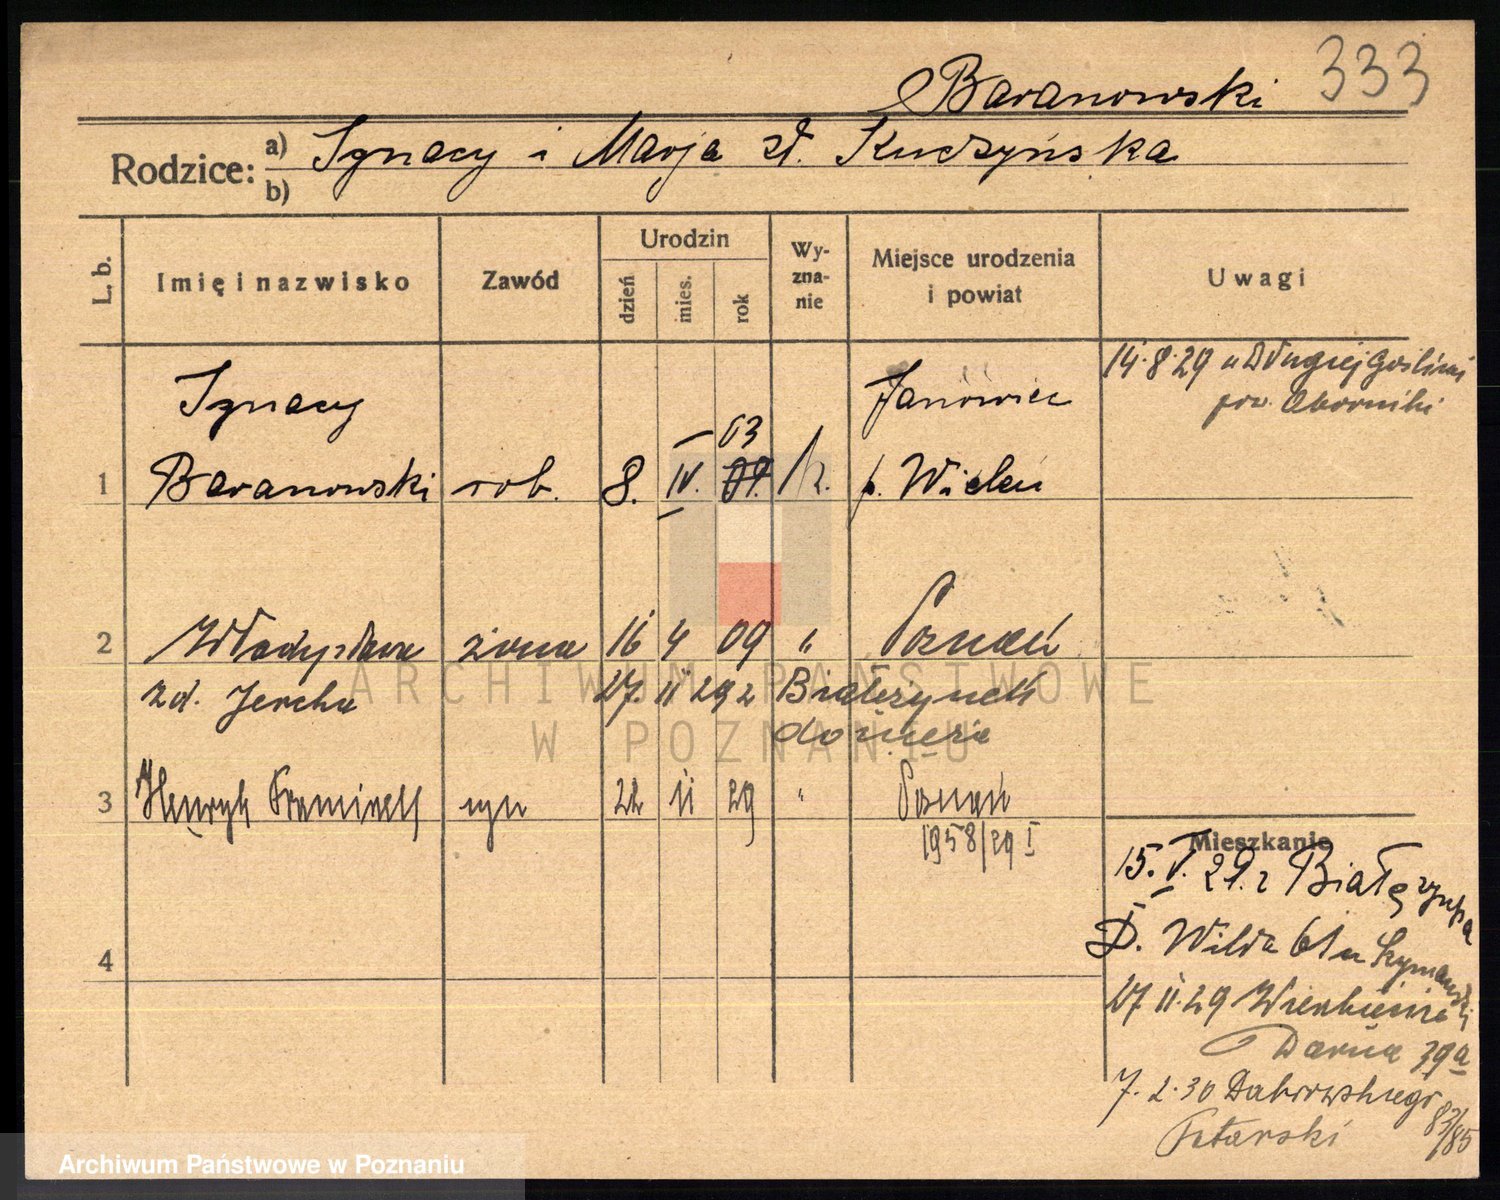 Baranowski 333
Rodzice: a) Ignacy i Marja zł. Kuczyńska
b)
L. b. Imię i nazwisko Zawód Urodzin dzień mies. rok Wy-zna-nie Miejsce urodzenia i powiat Uwagi
14.8.29 w Długiej Goślini
pow. Oborniki
Ignacy Janowiec
03
1 Baranowski rob. 8. IV. p. Wieleń
2 Władysława żona 16 4 09 " Poznań
zd. Jercha 27. 11 29 z Białężynek
3 Henryk syn 22 11 29 " Poznań
1958/29 I
Mieszkanie
15. V. 29. z Białężyna
D. Wilda 61 u Szymańskij
4
27 11.29 Wierzbięcice
39a
7. 2.30 Dąbrowskiego 83/85
Ptarski
ARCHIWUM PAŃSTWOWE
W POZNANIU
Archiwum Państwowe w Poznaniu